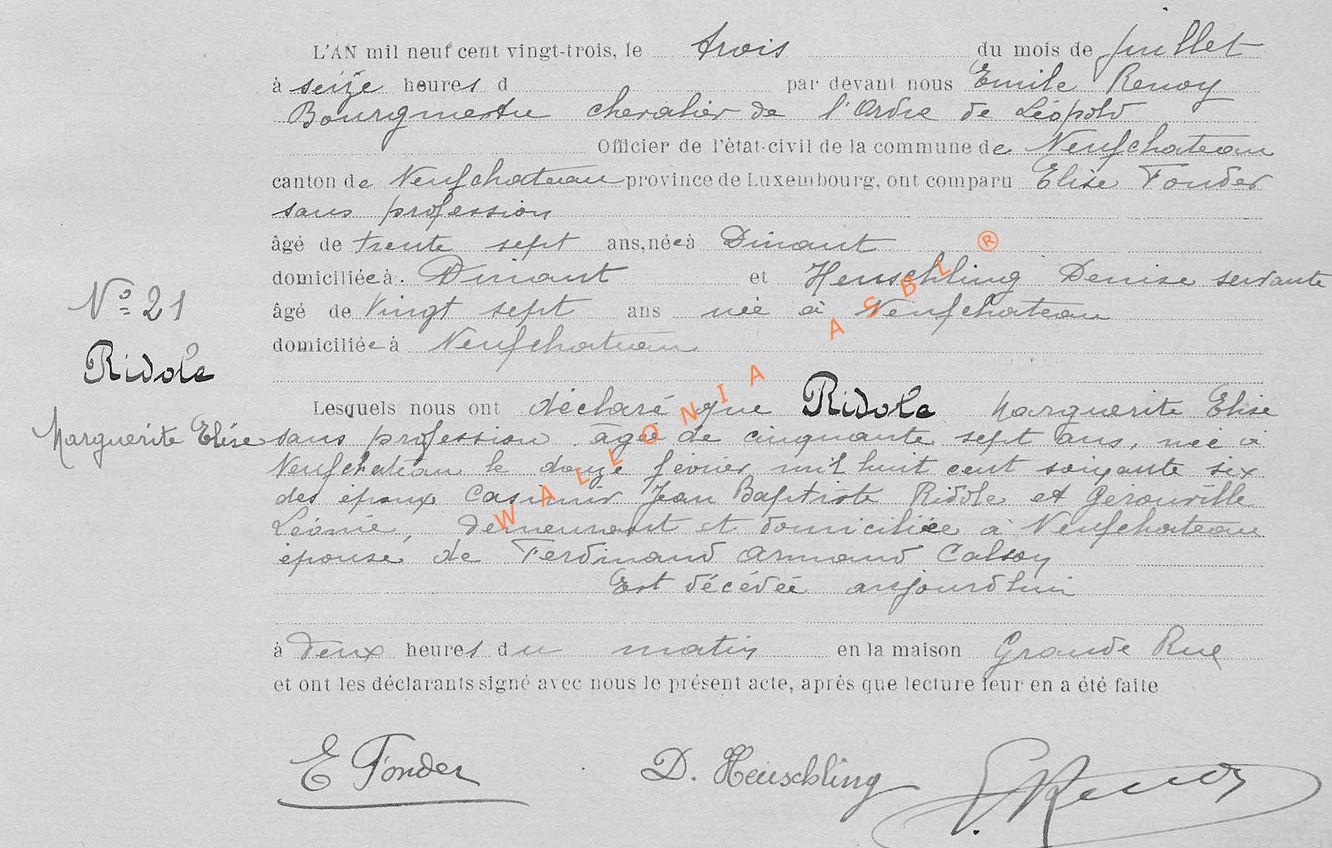 L'AN mil neuf cent vingt-trois, le trois du mois de juillet
à seize heures d par devant nous Emile Renoy
Bourgmestre chevalier de l'Ordre de Léopold
Officier de l'état-civil de la commune de Neufchateau
canton de Neufchateau province de Luxembourg, ont comparu Elise Fonder
sans profession
âgé de trente sept ans, née à Dinant
domiciliée à Dinant et Heuschling Denise servante
âgé de vingt sept ans née à Neufchateau
domiciliée à Neufchateau
N° 21
Ridole
Marguerite Elise
Lesquels nous ont déclaré que Ridole Marguerite Elise
sans profession âgée de cinquante sept ans, née à
Neufchateau le douze février mil huit cent soixante six
des époux Casimir Jean Baptiste Ridole et Gérouville
Léonie, demeurant et domiciliée à Neufchateau
épouse de Ferdinand Armand Calsoy
Est décédée aujourd'hui
à deux heures du matin en la maison Grande Rue
et ont les déclarants signé avec nous le présent acte, après que lecture leur en a été faite
E Fonder D. Heuschling E. Renoy
WALLONIA ASBL ®